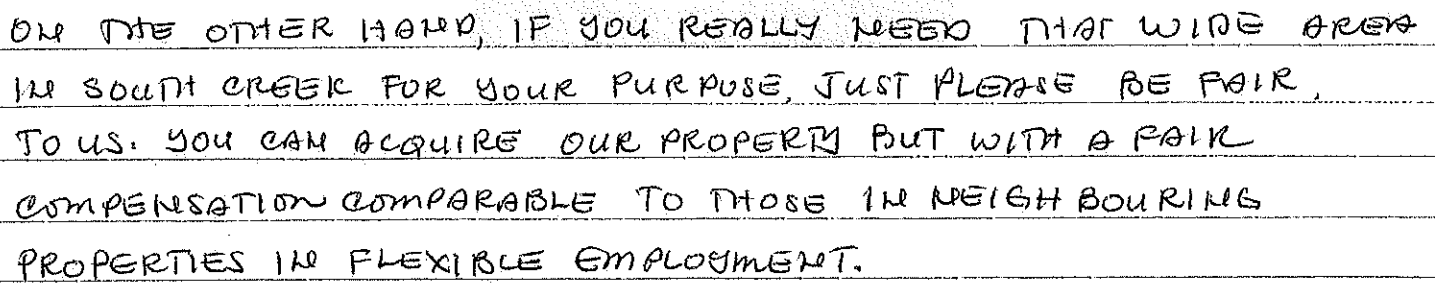 ON THE OTHER HAND, IF YOU REALLY NEED THAT WIDE AREA
IN SOUTH CREEK FOR YOUR PURPOSE, JUST PLEASE BE FAIR,
TO US. YOU CAN ACQUIRE OUR PROPERTY BUT WITH A FAIR
COMPENSATION COMPARABLE TO THOSE IN NEIGHBOURING
PROPERTIES IN FLEXIBLE EMPLOYMENT.